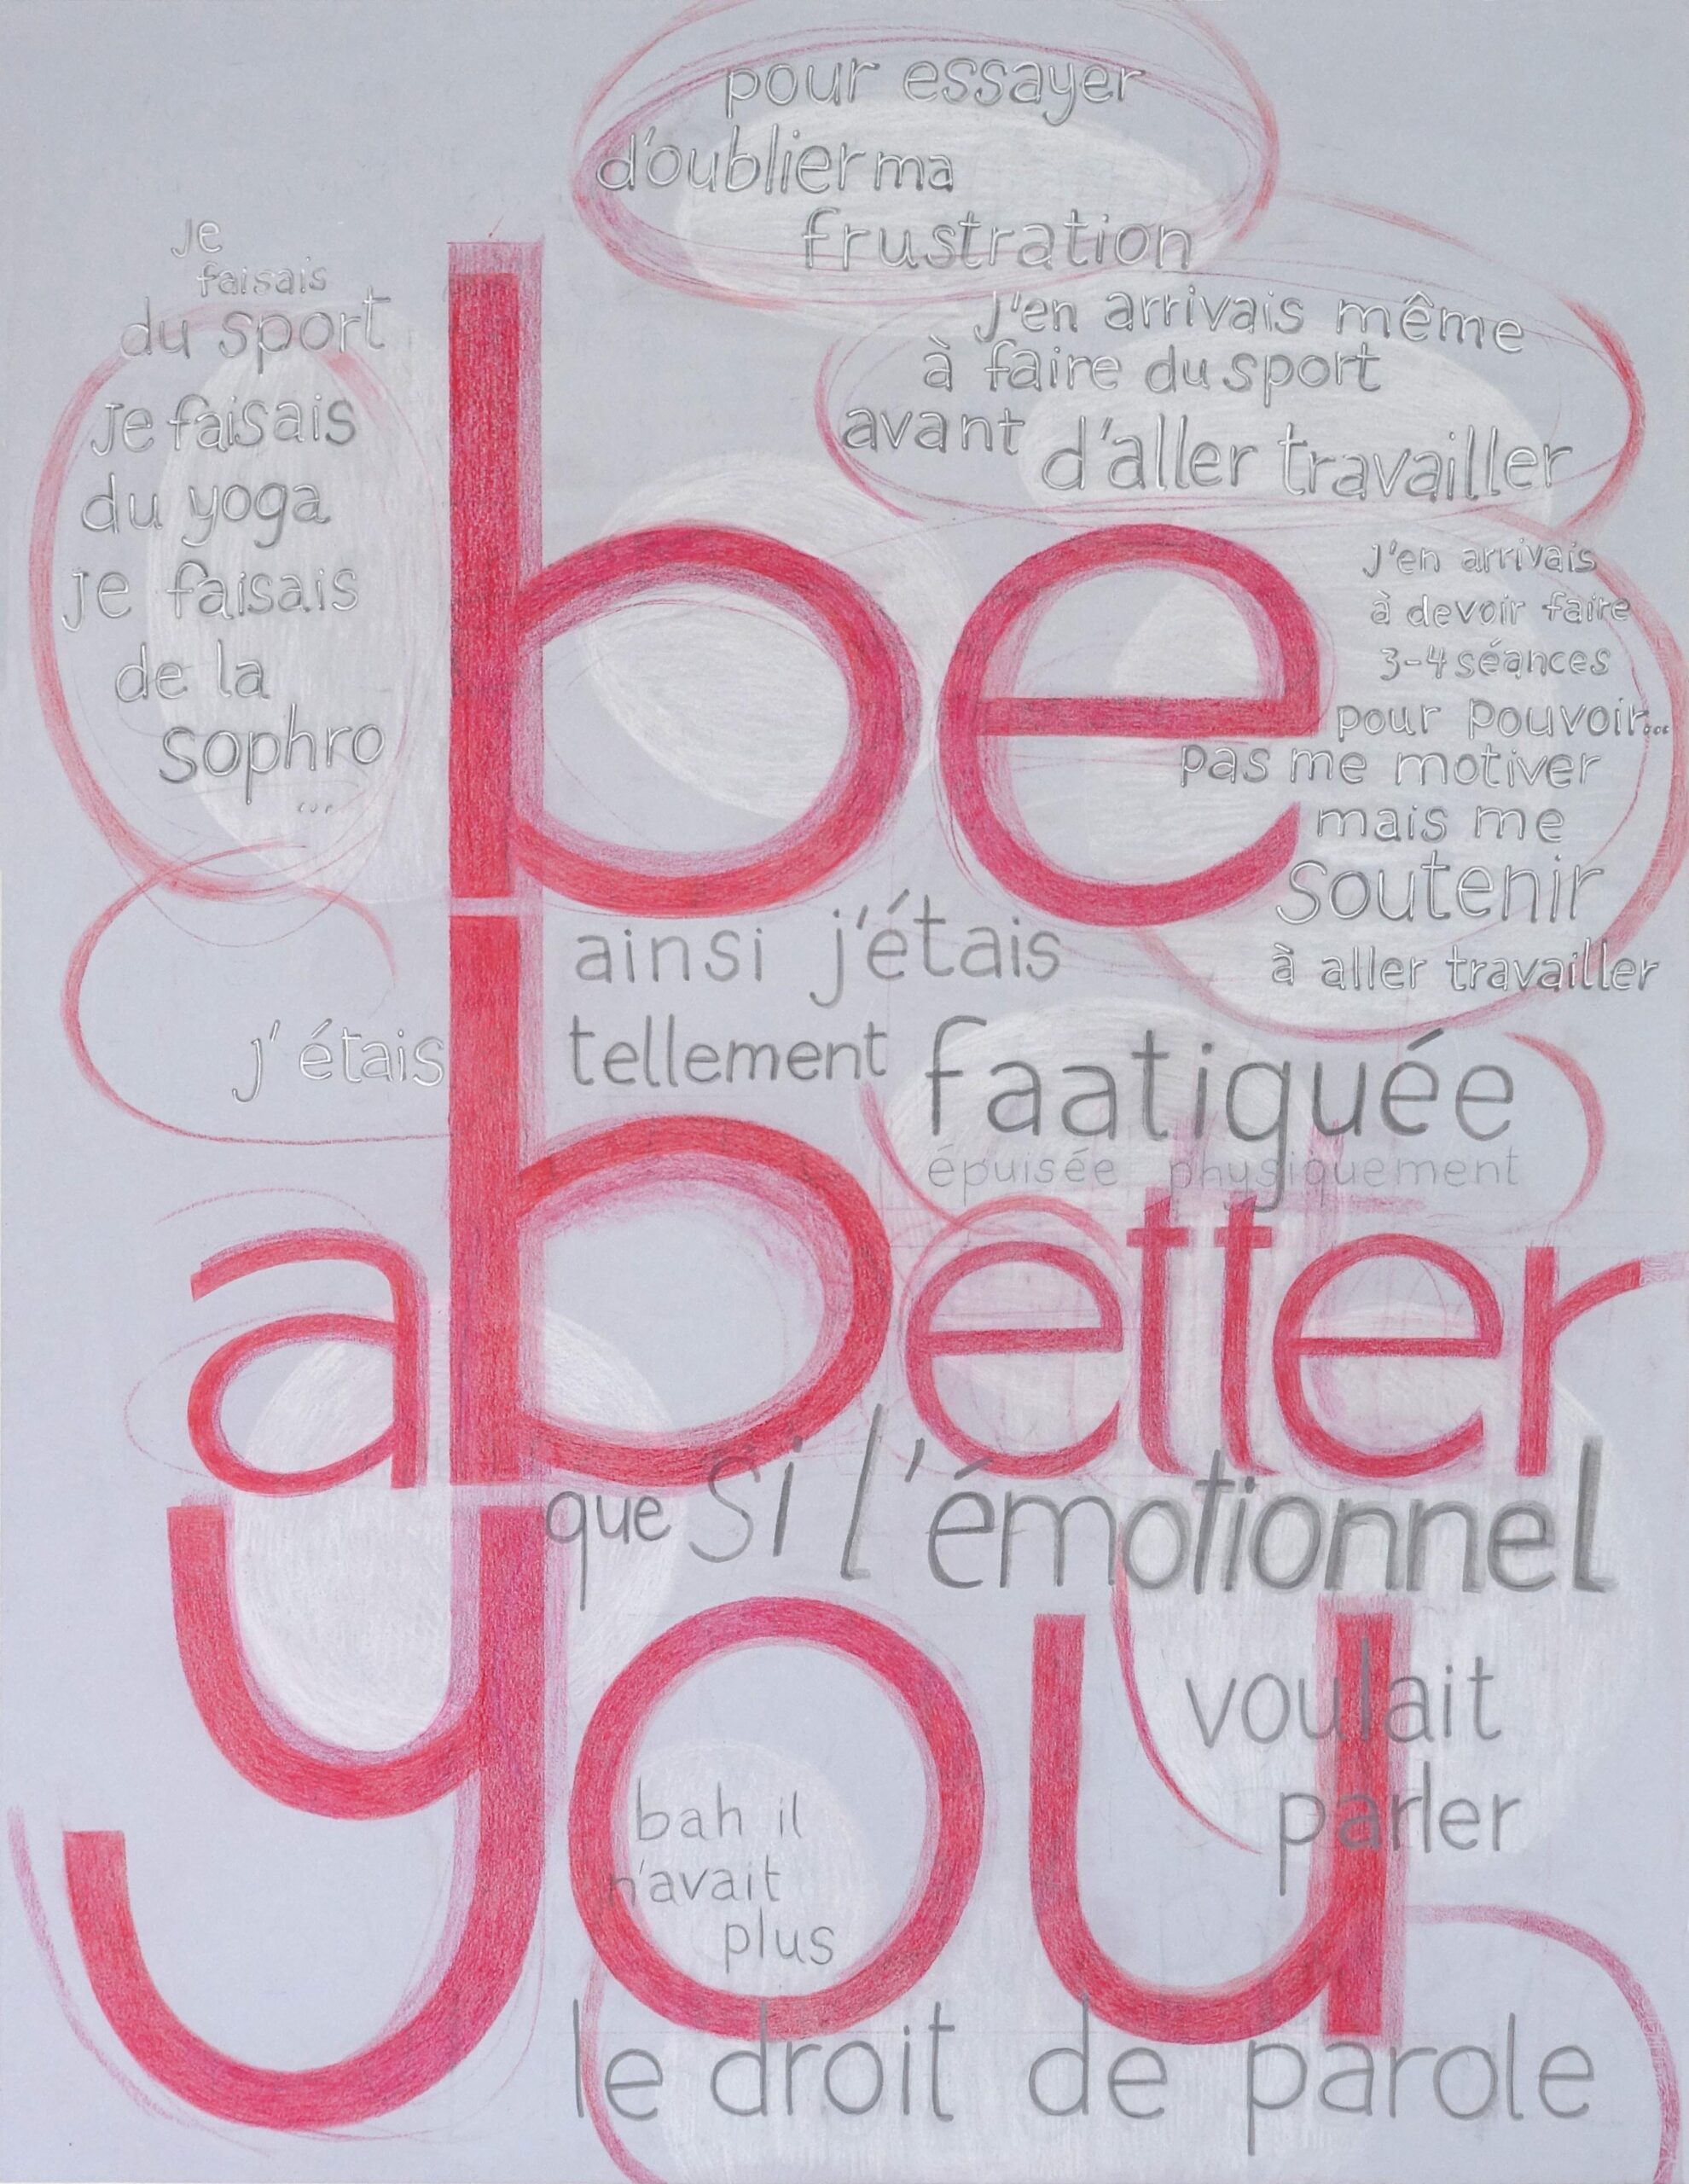 pour essayer
d'oublier ma
frustration
je
faisais
du sport
je faisais
du yoga
je faisais
de la
sophro
...
j'en arrivais même
à faire du sport
avant d'aller travailler
j'en arrivais
à devoir faire
3-4 séances
pour pouvoir...
pas me motiver
mais me
soutenir
à aller travailler
be
ainsi j'étais
j'étais tellement faatiguée
épuisée physiquement
a better
que si l'émotionnel
voulait
parler
you
bah il
n'avait
plus
le droit de parole